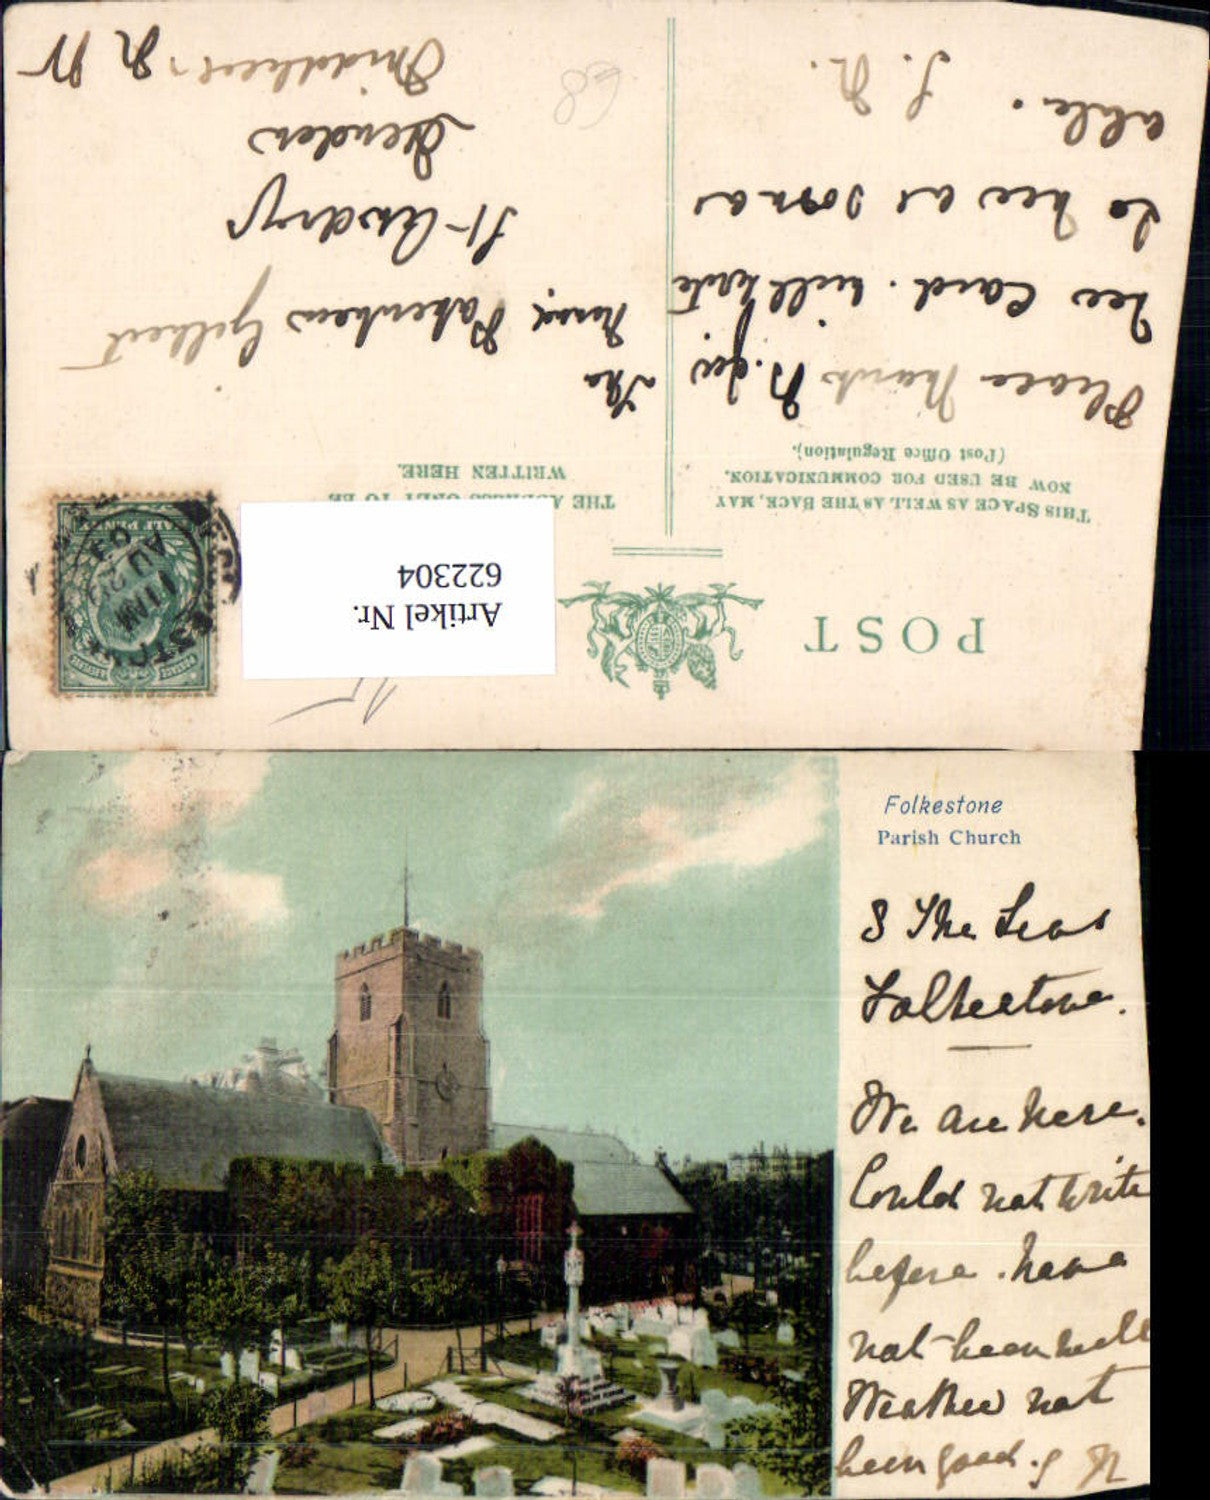 POST
THIS SPACE AS WELL AS THE BACK, MAY
NOW BE USED FOR COMMUNICATION.
(Post Office Regulation).
THE ADDRESS ONLY TO BE
WRITTEN HERE.
Artikel Nr.
622304
HALF PENNY
11 AM
AU
03
Please thank
See Card. will write
to her as soon as
able.
The
Gilbert
St-
Hendon
N W
68
Folkestone
Parish Church
8 The Leas
Folkestone.
We are here.
Could not write
before. have
not been well
Weather not
been good.